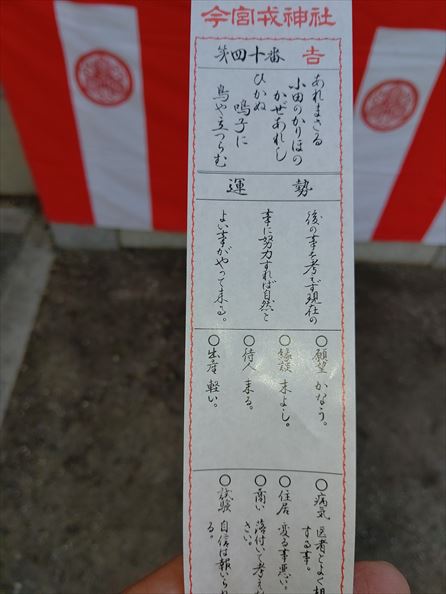 今宮戎神社
第四十番 吉
あれまさる
小田のかりほの
かぜあれし
ひかぬ
鳴子に
鳥や立つらむ
運勢
後の事を考えず現在の
事に努力すれば自然と
よい事がやって来る。
○願望 かなう。
○縁談 末よし。
○待人 来る。
○出産 軽い。
○病気 医者とよく相
する事。
○住居 変る事悪い。
○商い 落付いて考え
さい。
○試験 自信は報いら
る。